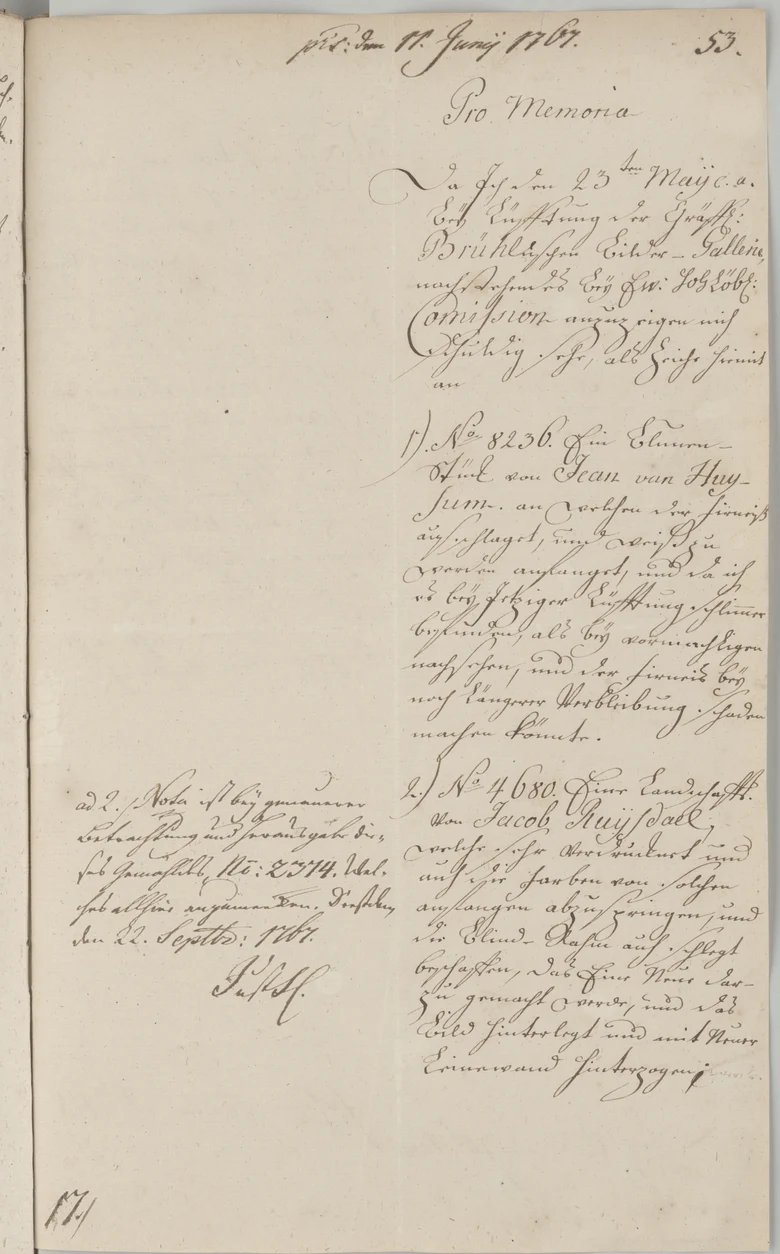 prs: den 11. Junij 1767.
53.
Pro Memoria
Da Ich den 23ten Maÿ c. a.
beÿ Lüfftung der Gräffl:
Brühlischen Bilder-Gallerie,
nachstehendes beÿ Ew: Hochlöbl:
Comission anzuzeigen mich
schuldig sehe, als zeige hiemit
an
1). No 8236. Ein Blumen-
Stück von Jean van Huy-
sum. an welchen der Firneiß
ausschlaget, und weiß zu
werden anfanget, und da ich
es beÿ jetziger Lüfftung schlimmer
befunden, als beÿ vormahligen
nachsehen, und der Firneis beÿ
noch Längerer Verbleibung schaden
machen könnte.
2.) No 4680. Eine Landschafft.
von Jacob Ruÿsdael,
welche sehr verdrucknet und
auch die Farben von solchen
anfangen abzuspringen, und
die Blind-Rahm auch schlegt
beschaffen, das Eine Neue dar-
zu gemacht werde, und das
Bild hinterlegt und mit Neuer
Leinewand hinterzogen;
ad 2./ Nota ist beÿ genauerer
Betrachtung und herausgabe die-
ses Gemähldes, No: 2374. wel-
ches allhier anzumercken. Dresden,
den 22. Septbr: 1767.
Just H.
17./